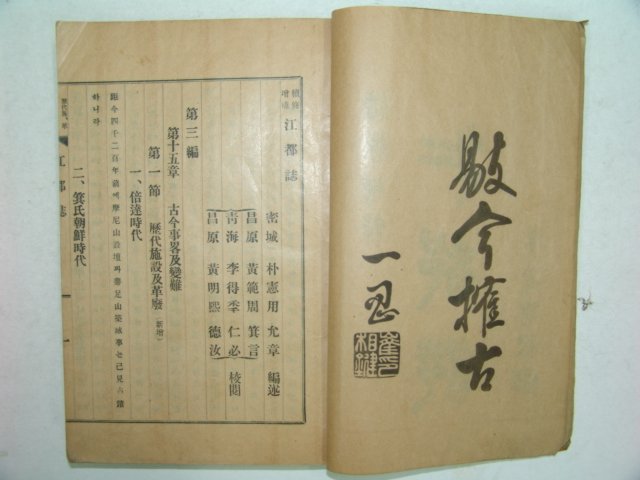 今搉古
一
續修增補 江都誌
密城 朴憲用 允章 編述
昌原 黃範周 箕言
靑海 李得季 仁必 校閱
昌原 黃明熙 德汝
第三編
第十五章 古今事畧及變難
第一節 歷代施設及革廢(新增)
一、倍達時代
距今四千二百年前에摩尼山設壇과鼎足山築城事는已見古蹟
하니라
二、箕氏朝鮮時代
江都誌 一